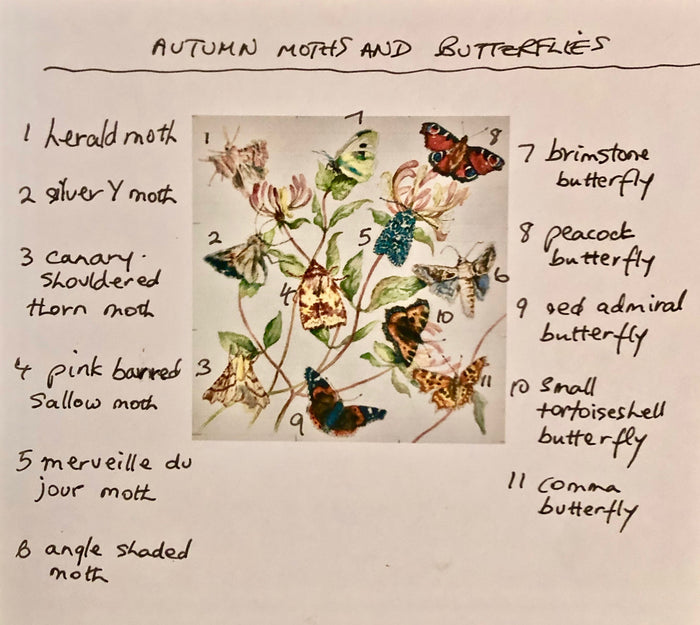 AUTUMN MOTHS AND BUTTERFLIES
1 herald moth
2 silver Y moth
3 canary-
shouldered
thorn moth
4 pink barred
sallow moth
5 merveille du
jour moth
6 angle shaded
moth
1
7
8
2
5
4
6
10
3
11
9
7 brimstone
butterfly
8 peacock
butterfly
9 red admiral
butterfly
10 small
tortoiseshell
butterfly
11 comma
butterfly